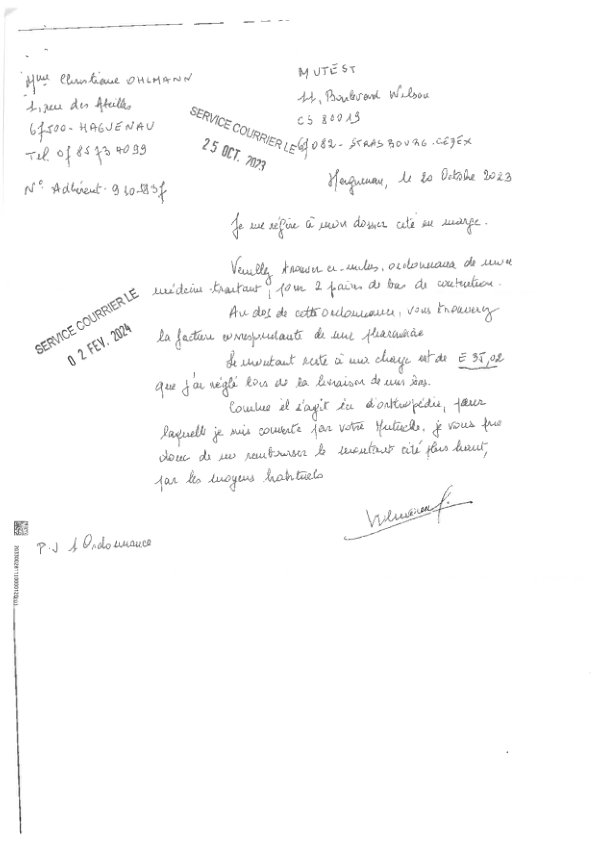 Mme Christiane OHLMANN
1, rue des Abeilles
67500 - HAGUENAU
Tel. 07 85 73 4099
N° Adhérent - 930-
MUTEST
11, Boulevard Wilson
CS 80019
67082 - STRASBOURG - CEDEX
SERVICE COURRIER LE
25 OCT. 2023
Haguenau, le 20 Octobre 2023
Je me réfère à mon dossier cité en marge.
Veuillez trouver ci-inclus, ordonnance de mon
médecin-traitant, pour 2 paires de bas de contention.
Au dos de cette ordonnance, vous trouverez
la facture correspondante de ma pharmacie
SERVICE COURRIER LE
02 FEV. 2024
Le montant resté à ma charge est de E 35,02
que j'ai réglé lors de la livraison de mes bas.
Comme il s'agit ici d'orthopédie, pour
laquelle je suis couverte par votre Mutuelle, je vous prie
donc de me rembourser le montant cité plus haut,
par les moyens habituels
P.J 1 Ordonnance